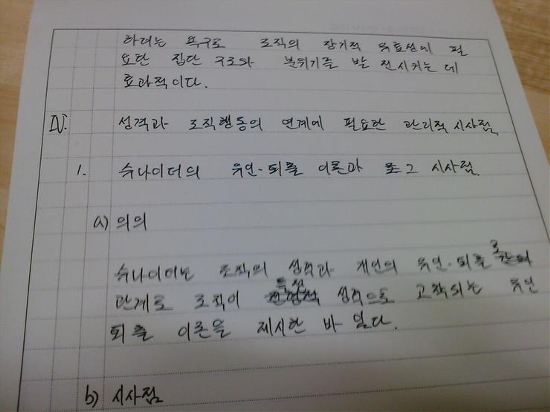 하려는 욕구로 조직의 장기적 유효성에 필
요한 집단 구조와 분위기를 발전시키는 데
효과적이다.
IV. 성격과 조직행동의 연계에 필요한 관리적 시사점
1. 슈나이더의 유인·퇴출 이론과 그 시사점
a) 의의
슈나이더는 조직의 성격과 개인의 유인·퇴출
관계로 조직이 특정 성격으로 고착되는 유인
퇴출 이론을 제시한 바 있다.
b) 시사점